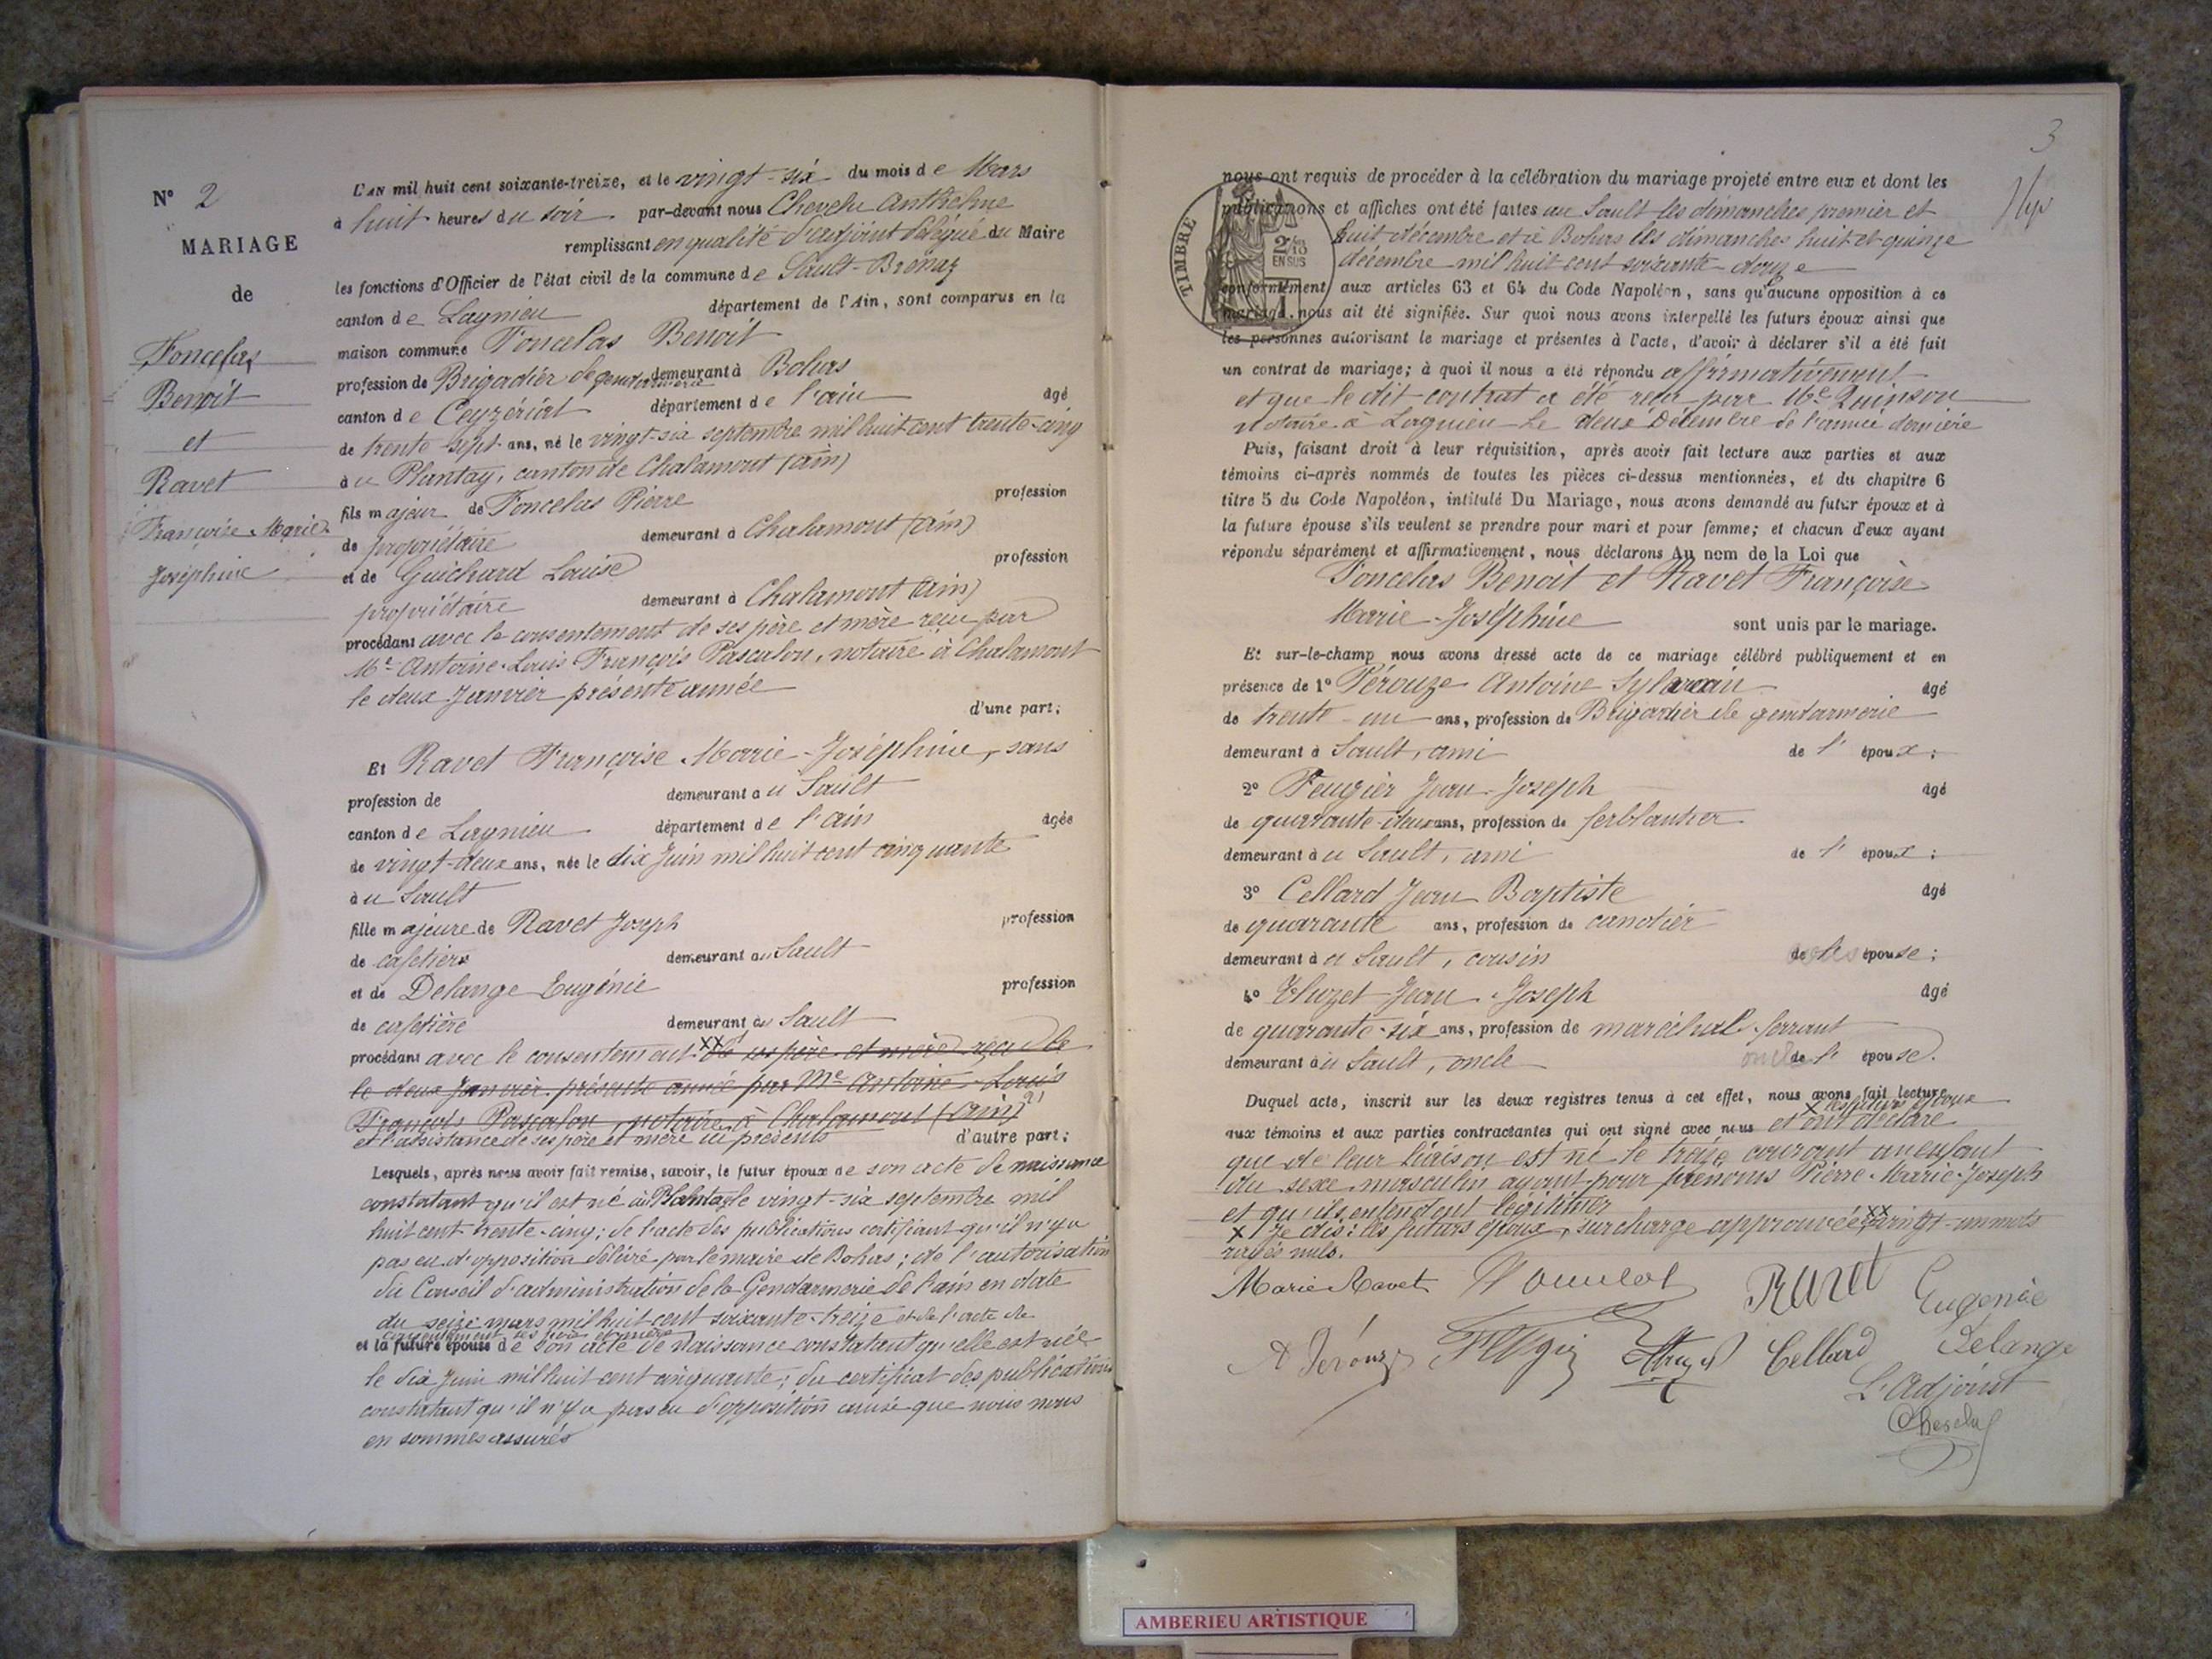 N° 2
MARIAGE
de
Foncelas
Benoit
et
Ravet
Françoise Marie
Joséphine
L'AN mil huit cent soixante-treize, et le vingt-six du mois de Mars
à huit heures du soir par-devant nous Chevelu Anthelme
remplissant en qualité d'adjoint délégué du Maire
les fonctions d'Officier de l'état civil de la commune de Sault-Brénaz
canton de Lagnieu département de l'Ain, sont comparus en la
maison commune Foncelas Benoit
profession de Brigadier de gendarmerie demeurant à Bohas
canton de Ceyzériat département de l'ain âgé
de trente-sept ans, né le vingt-six septembre mil huit cent trente-cinq
à u Plantay, canton de Chalamont (ain)
fils majeur de Foncelas Pierre profession
de propriétaire demeurant à Chalamont (ain)
et de Guichard Louise profession
propriétaire demeurant à Chalamont (ain)
procédant avec le consentement de ses père et mère reçu par
Me Antoine-Louis-François Pascalon, notaire à Chalamont
le deux Janvier présente année
d'une part;
Et Ravet Françoise Marie-Joséphine, sans
profession de demeurant au Sault
canton de Lagnieu département de l'ain âgée
de vingt-deux ans, née le dix Juin mil huit cent cinquante
à u Sault
fille majeure de Ravet Joseph profession
de cafetier demeurant au Sault
et de Delange Eugénie profession
de cafetière demeurant au Sault
procédant avec le consentement XX de ses père et mère reçu le
le deux Janvier présente année par Me Antoine-Louis
François Pascalon, notaire à Chalamont (ain)
et l'assistance de ses père et mère ici présents d'autre part;
Lesquels, après nous avoir fait remise, savoir, le futur époux de son acte de naissance
constatant qu'il est né au Plantay le vingt-six septembre mil
huit cent trente-cinq; de l'acte des publications certifiant qu'il n'y a
pas eu d'opposition délivré par le maire de Bohas; de l'autorisation
du Conseil d'administration de la Gendarmerie de l'ain en date
du seize mars mil huit cent soixante-treize et de l'acte de
consentement des père et mère
et la future épouse de son acte de Naissance constatant qu'elle est née
le dix Juin mil huit cent cinquante; du certificat des publications
constatant qu'il n'y a pas eu d'opposition ainsi que nous nous
en sommes assurés
3
TIMBRE
2/10
EN SUS
nous ont requis de procéder à la célébration du mariage projeté entre eux et dont les
publications et affiches ont été faites au Sault les dimanches premier et
huit décembre et à Bohas les dimanches huit et quinze
décembre mil huit cent soixante-douze
conformément aux articles 63 et 64 du Code Napoléon, sans qu'aucune opposition à ce
mariage nous ait été signifiée. Sur quoi nous avons interpellé les futurs époux ainsi que
les personnes autorisant le mariage et présentes à l'acte, d'avoir à déclarer s'il a été fait
un contrat de mariage; à quoi il nous a été répondu affirmativement
et que le dit contrat a été reçu par Me Quinson
notaire à Lagnieu le deux Décembre de l'année dernière
Puis, faisant droit à leur réquisition, après avoir fait lecture aux parties et aux
témoins ci-après nommés de toutes les pièces ci-dessus mentionnées, et du chapitre 6
titre 5 du Code Napoléon, intitulé Du Mariage, nous avons demandé au futur époux et à
la future épouse s'ils veulent se prendre pour mari et pour femme; et chacun d'eux ayant
répondu séparément et affirmativement, nous déclarons Au nom de la Loi que
Foncelas Benoit et Ravet Françoise
Marie-Joséphine sont unis par le mariage.
Et sur-le-champ nous avons dressé acte de ce mariage célébré publiquement et en
présence de 1° Pérouze Antoine Sylvain âgé
de trente-un ans, profession de Brigadier de gendarmerie
demeurant à Sault, ami de l'époux;
2° Feugier Jean-Joseph âgé
de quarante-deux ans, profession de ferblantier
demeurant à u Sault, ami de l'époux;
3° Cellard Jean Baptiste âgé
de quarante ans, profession de canotier
demeurant à u Sault, cousin de l'épouse;
4° Jean-Joseph âgé
de quarante-six ans, profession de maréchal-ferrant
demeurant à u Sault, oncle de l'épouse.
Duquel acte, inscrit sur les deux registres tenus à cet effet, nous avons fait lecture
aux témoins et aux parties contractantes qui ont signé avec nous X les futurs époux et ont déclaré
que de leur liaison est né le treize courant un enfant
du sexe masculin ayant pour prénoms Pierre-Marie-Joseph
et qu'ils entendent légitimer
X Je dis: les futurs époux, surcharge approuvée XX vingt-un mots
rayés nuls.
Marie Ravet Foncelas Ravet Eugénie
Delange
A Pérouze Feugier Cellard
L'Adjoint
Chevelu
AMBERIEU ARTISTIQUE